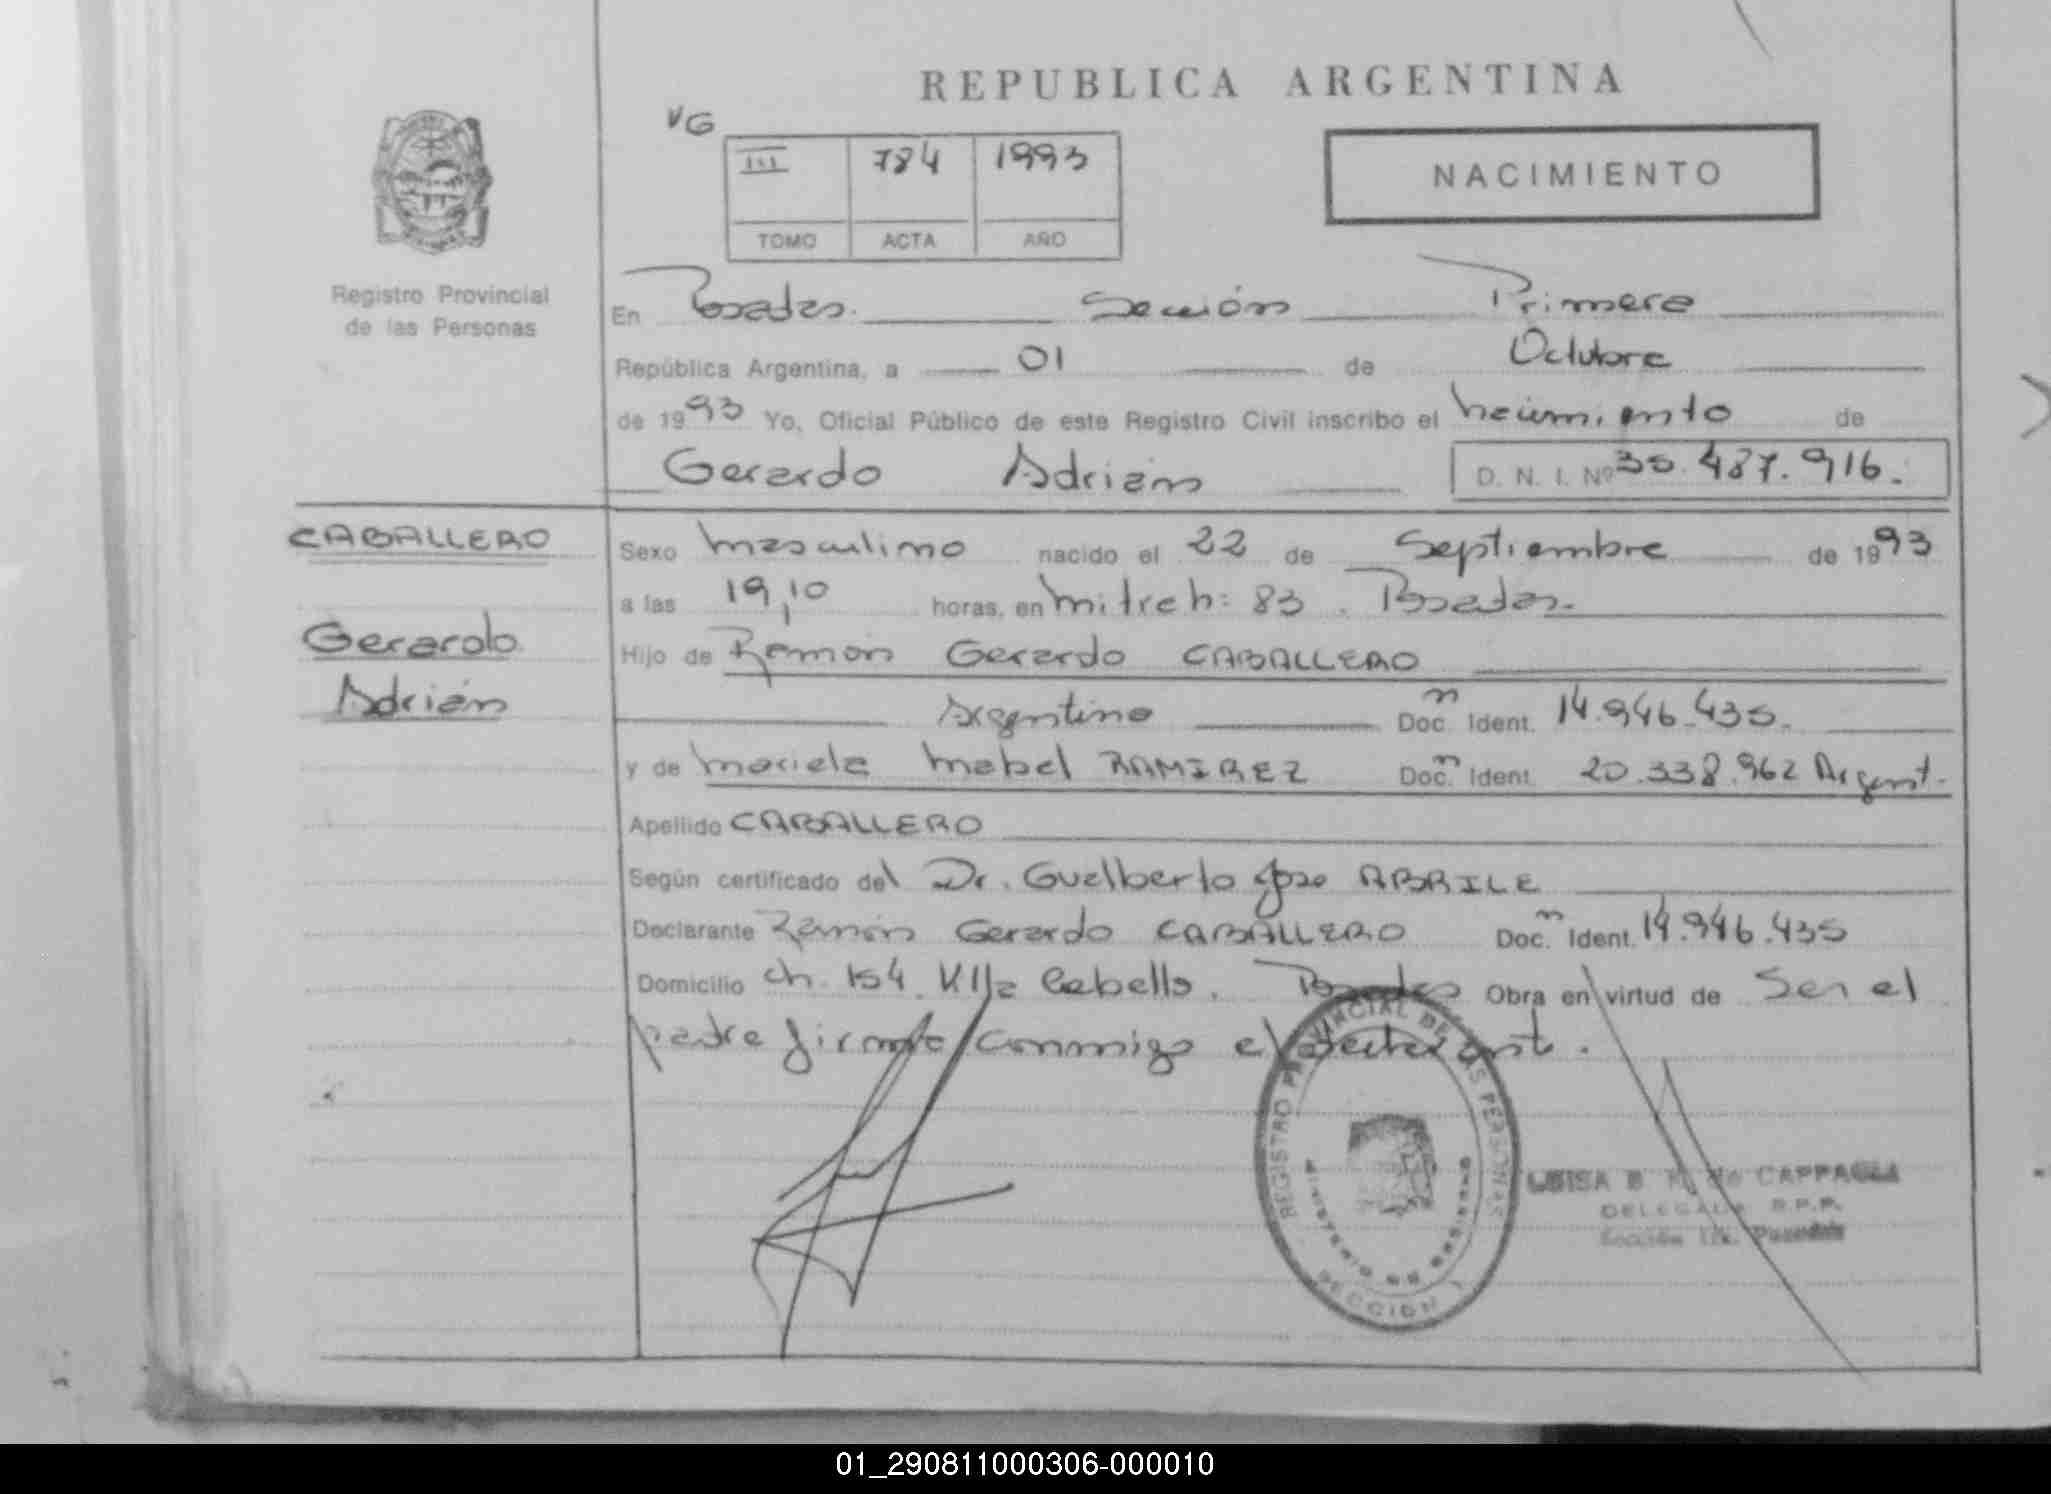 REPUBLICA ARGENTINA
VG
III 784 1993
TOMO ACTA AÑO
NACIMIENTO
Registro Provincial
de las Personas
En Posadas. Sección Primera
República Argentina, a 01 de Octubre
de 1993 Yo, Oficial Público de este Registro Civil inscribo el nacimiento de
Gerardo Adrián D. N. I. Nº 35.487.916.
CABALLERO
Gerardo
Adrián
Sexo masculino nacido el 22 de Septiembre de 1993
a las 19,10 horas, en Mitre n: 83. Posadas.
Hijo de Ramón Gerardo CABALLERO
Argentino Doc. Ident. 14.946.435.
y de Mariela Mabel RAMIREZ Doc. Ident. 20.338.962 Argent.
Apellido CABALLERO
Según certificado del Dr. Gualberto Jose ABRILE
Declarante Ramón Gerardo CABALLERO Doc. Ident. 14.946.435
Domicilio ch. 154 Villa Cabello. Posadas Obra en virtud de Ser el
padre firma conmigo el declarante.
REGISTRO PROVINCIAL DE LAS PERSONAS
MINISTERIO DE GOBIERNO
SECCION 1
LUISA B de CAPPAGLIA
DELEGADA R.P.P.
Sección 1ra. Posadas
01_290811000306-000010